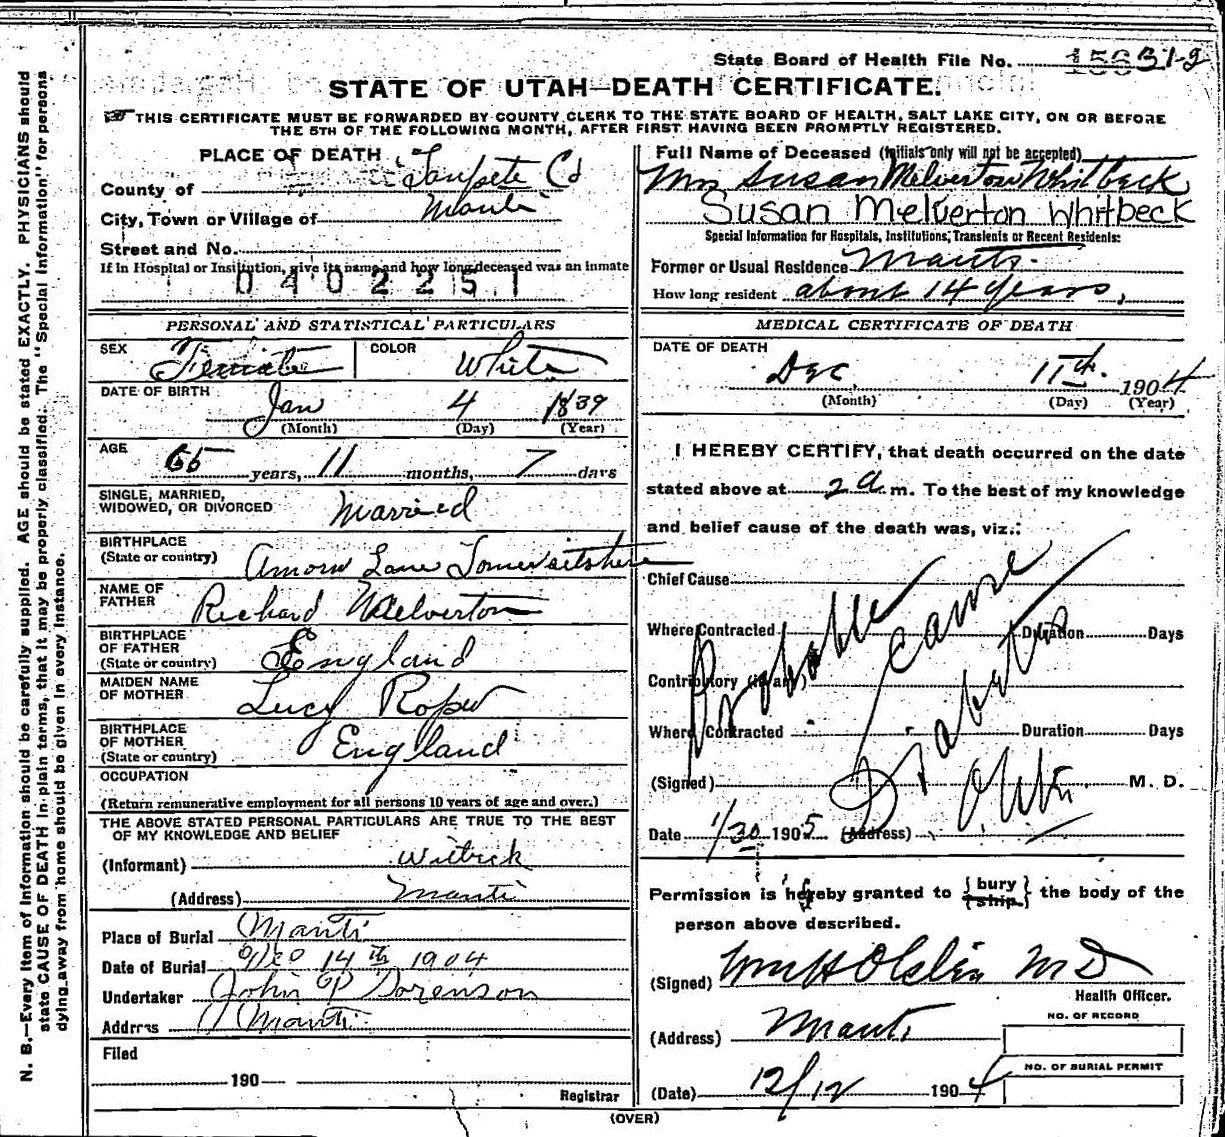 State Board of Health File No.
STATE OF UTAH—DEATH CERTIFICATE.
THIS CERTIFICATE MUST BE FORWARDED BY COUNTY CLERK TO THE STATE BOARD OF HEALTH, SALT LAKE CITY, ON OR BEFORE
THE 5TH OF THE FOLLOWING MONTH, AFTER FIRST HAVING BEEN PROMPTLY REGISTERED.
PLACE OF DEATH
County of Sanpete Co
City, Town or Village of Manti
Street and No.
If in Hospital or Institution, give its name and how long deceased was an inmate
0402251
Full Name of Deceased (Initials only will not be accepted)
Mrs Susan Melverton Whitbeck
Susan Melverton Whitbeck
Special Information for Hospitals, Institutions, Transients or Recent Residents:
Former or Usual Residence Manti.
How long resident about 14 years,
PERSONAL AND STATISTICAL PARTICULARS
SEX Female COLOR White
DATE OF BIRTH Jan 4 1839
(Month) (Day) (Year)
AGE 65 years, 11 months, 7 days
SINGLE, MARRIED,
WIDOWED, OR DIVORCED Married
BIRTHPLACE
(State or country) Lane Somersitshire
NAME OF
FATHER Richard Melverton
BIRTHPLACE
OF FATHER
(State or country) England
MAIDEN NAME
OF MOTHER Lucy Roper
BIRTHPLACE
OF MOTHER
(State or country) England
OCCUPATION
(Return remunerative employment for all persons 10 years of age and over.)
THE ABOVE STATED PERSONAL PARTICULARS ARE TRUE TO THE BEST
OF MY KNOWLEDGE AND BELIEF
(Informant) Witbeck
(Address) Manti
Place of Burial Manti
Date of Burial 14th 1904
Undertaker John P Sorenson
Address Manti
Filed
190
Registrar
MEDICAL CERTIFICATE OF DEATH
DATE OF DEATH
Dec 11th. 1904
(Month) (Day) (Year)
I HEREBY CERTIFY, that death occurred on the date
stated above at 2 a. m. To the best of my knowledge
and belief cause of the death was, viz.:
Chief Cause
Where Contracted Duration Days
Contributory (if any)
Where Contracted Duration Days
Probable Cause
Diabetes
(Signed) M. D.
Date 1/30 1905 (Address)
Permission is hereby granted to {bury ship} the body of the
person above described.
(Signed) Wm H Olsten M D
Health Officer.
(Address) Manti
NO. OF RECORD
NO. OF BURIAL PERMIT
(Date) 12/12 1904
(OVER)
N. B.—Every item of information should be carefully supplied. AGE should be stated EXACTLY. PHYSICIANS should
state CAUSE OF DEATH in plain terms, that it may be properly classified. The "Special Information" for persons
dying away from home should be given in every instance.